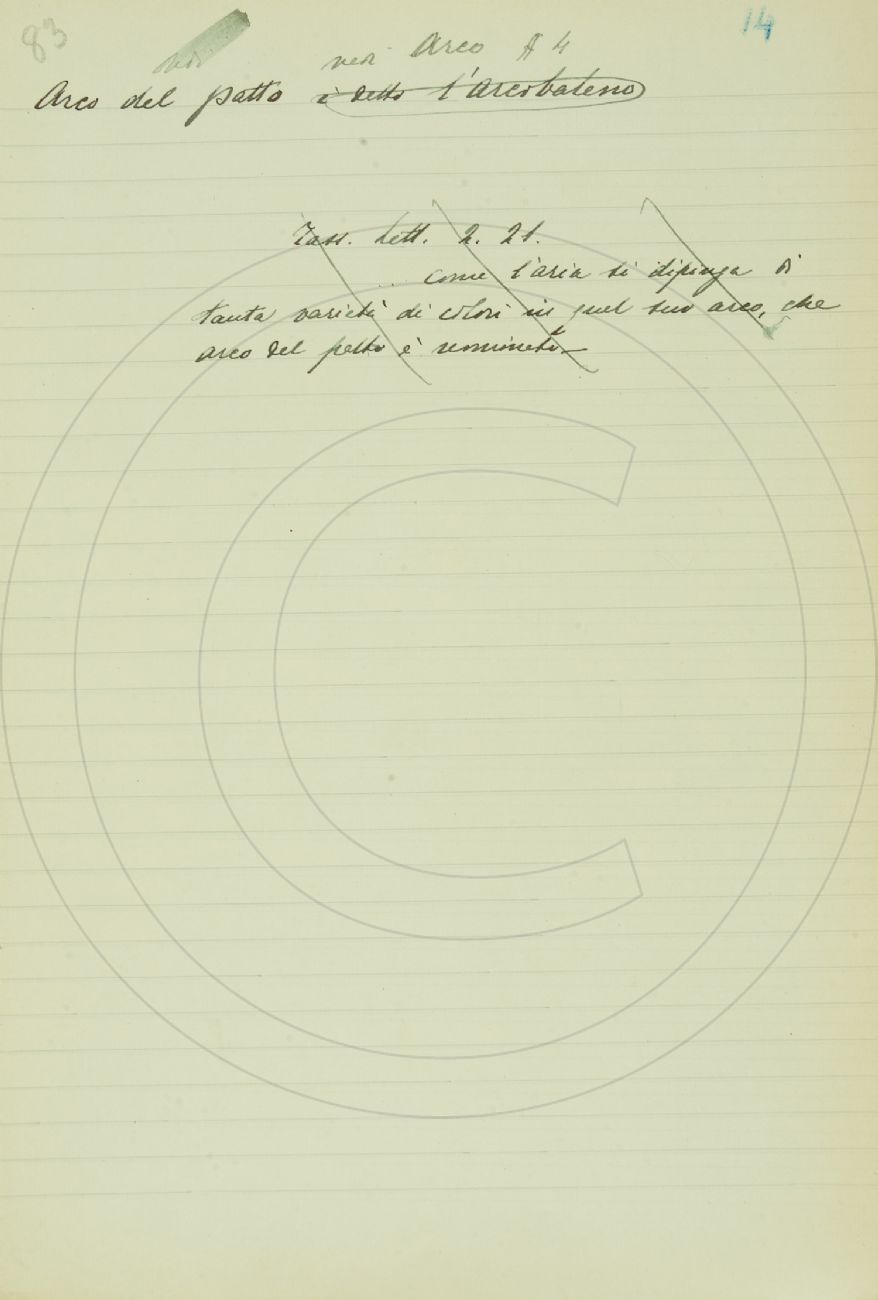 83
14
vedi
vedi Arco § 4
Arco del patto è detto l'Arcobaleno
Tass. Lett. 2. 21.
... come l'aria si dipinga di
tanta varietà di colori in quel suo arco, che
arco del patto è nominato